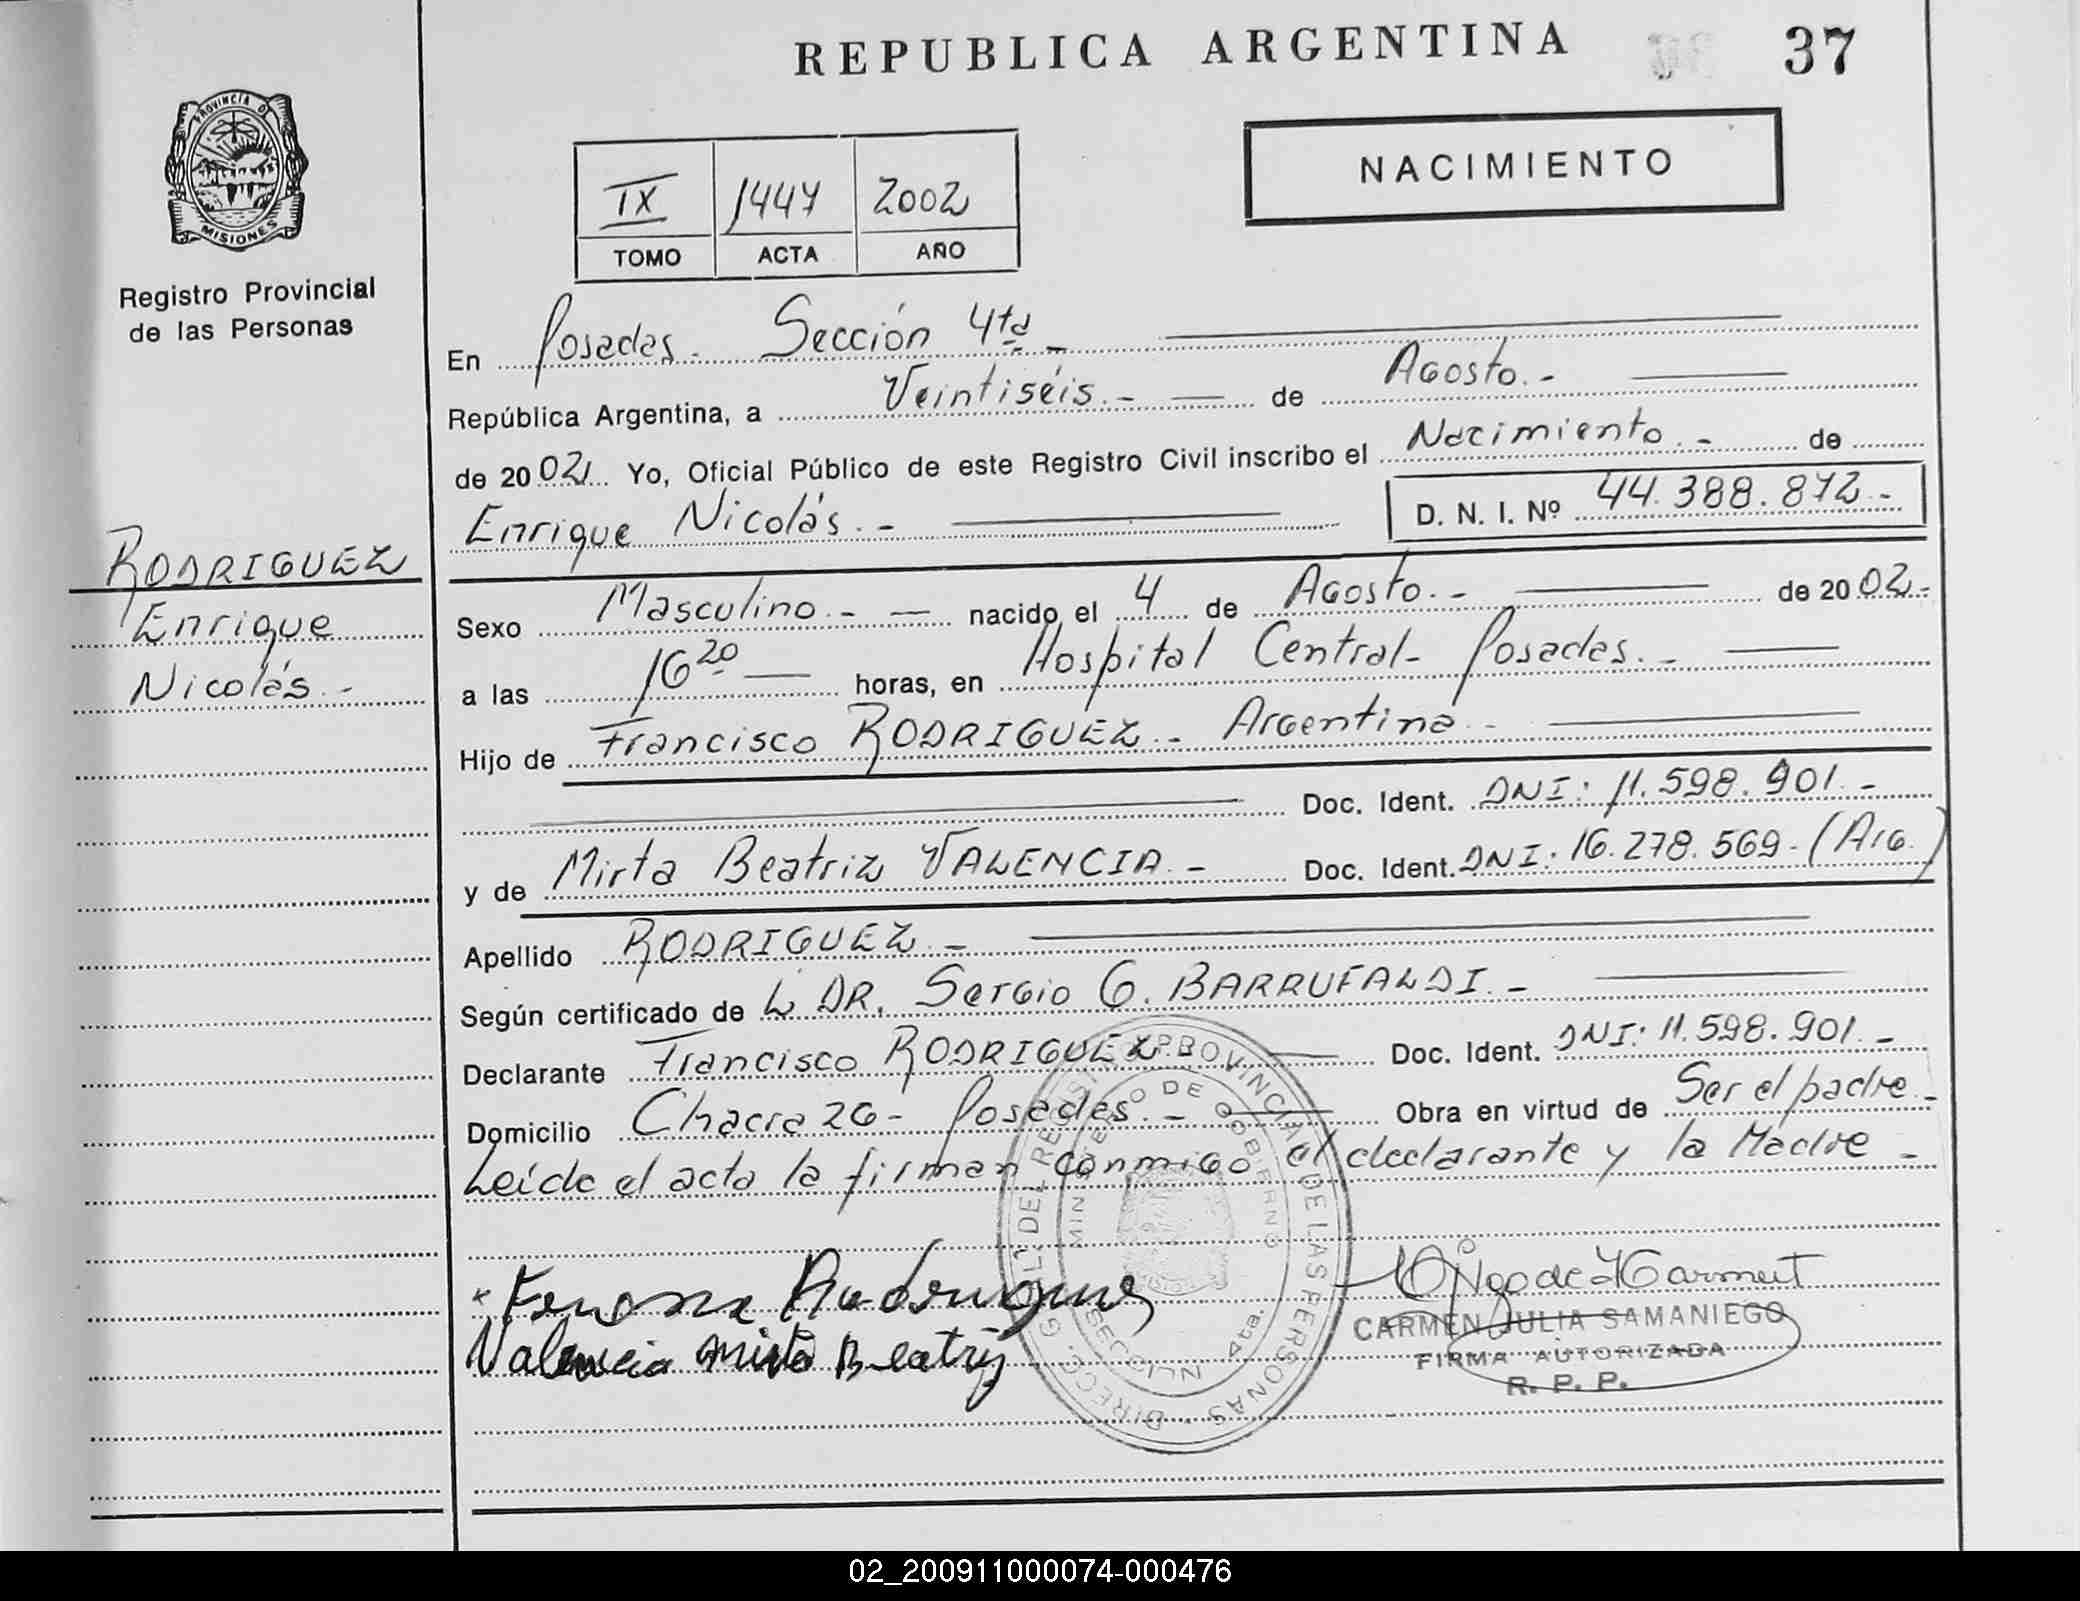 REPUBLICA ARGENTINA 37
PROVINCIA D
MISIONES
Registro Provincial
de las Personas
NACIMIENTO
IX 1447 2002
TOMO ACTA AÑO
En Posadas. Sección 4ta.-
República Argentina, a Veintiséis.- de Agosto.-
de 2002. Yo, Oficial Público de este Registro Civil inscribo el Nacimiento.- de
Enrique Nicolás.- D. N. I. Nº 44.388.872.-
RODRIGUEZ
Enrique
Nicolás.-
Sexo Masculino.- nacido el 4 de Agosto.- de 2002.-
a las 16 20 horas, en Hospital Central- Posadas.-
Hijo de Francisco RODRIGUEZ.- Argentina.-
Doc. Ident. DNI: 11.598.901.-
y de Mirta Beatriz VALENCIA.- Doc. Ident. DNI: 16.278.569-(Arg.)
Apellido RODRIGUEZ.-
Según certificado de L DR. Sergio G. BARRUFALDI.-
Declarante Francisco RODRIGUEZ.- Doc. Ident. DNI: 11.598.901.-
Domicilio Chacra 26- Posadas.- Obra en virtud de Ser el padre.-
Leída el acta la firman conmigo el declarante y la Madre-
DIRECC. GRAL. DEL REGISTRO PROVINCIAL DE LAS PERSONAS
MINISTERIO DE GOBIERNO
SECCION 4ta.
Rodriguez
Valencia Mirta Beatriz
CARMEN JULIA SAMANIEGO
FIRMA AUTORIZADA
R. P. P.
02_200911000074-000476